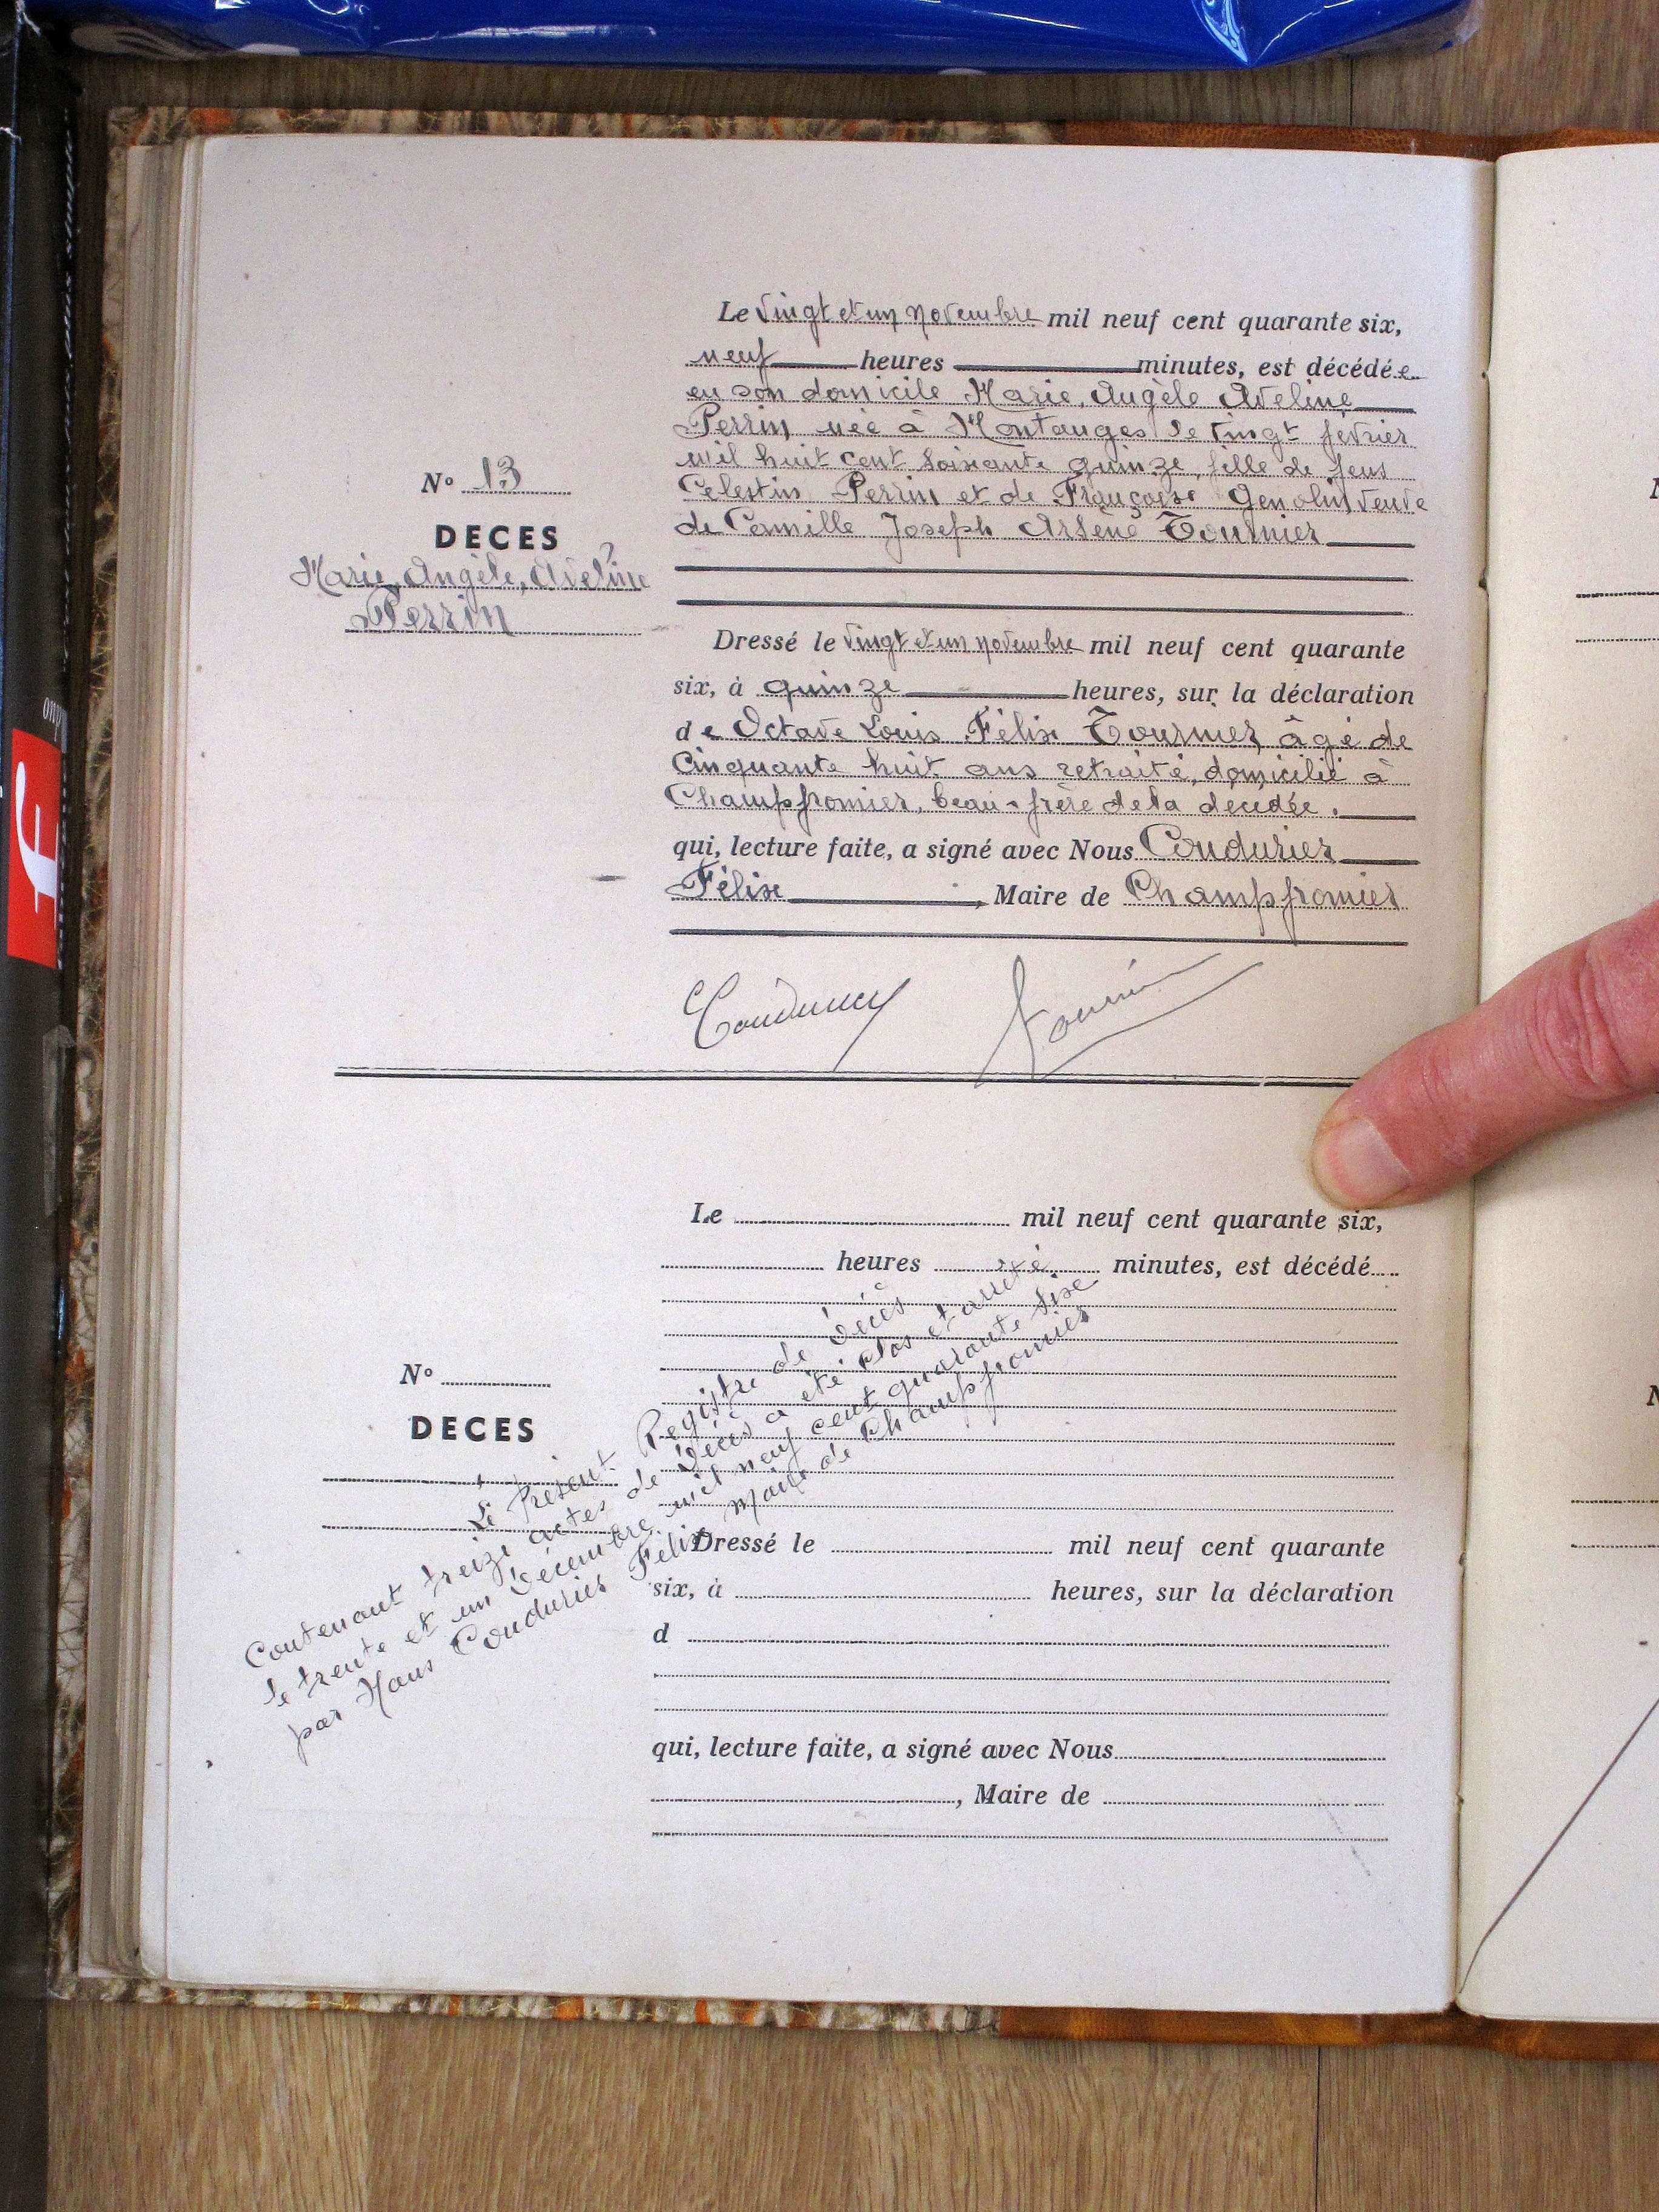 Le vingt et un novembre mil neuf cent quarante six,
neuf heures minutes, est décédée
en son domicile Marie, Angèle Aveline
Perrin née à Montanges le vingt fevrier
mil huit cent soixante quinze, fille de feus
Celestin Perrin et de Françoise Genolin, veuve
de Camille Joseph Arsène Tournier
N° 13
DECES
Marie, Angèle, Aveline
Perrin
Dressé le vingt et un novembre mil neuf cent quarante
six, à quinze heures, sur la déclaration
de Octave Louis Félix Tournier âgé de
cinquante huit ans retraité, domicilié à
Champfromier, beau-frère de la décédée.
qui, lecture faite, a signé avec Nous Coudurier
Félix, Maire de Champfromier
Coudurier
Tournier
Le mil neuf cent quarante six,
heures minutes, est décédé
N°
DECES
Le Présent Registre de Décès
Contenant treize actes de Décès a été clos et arrêté
le trente et un Décembre mil neuf cent quarante six
par Nous Coudurier Félix Maire de Champfromier
Dressé le mil neuf cent quarante
six, à heures, sur la déclaration
d
qui, lecture faite, a signé avec Nous
, Maire de